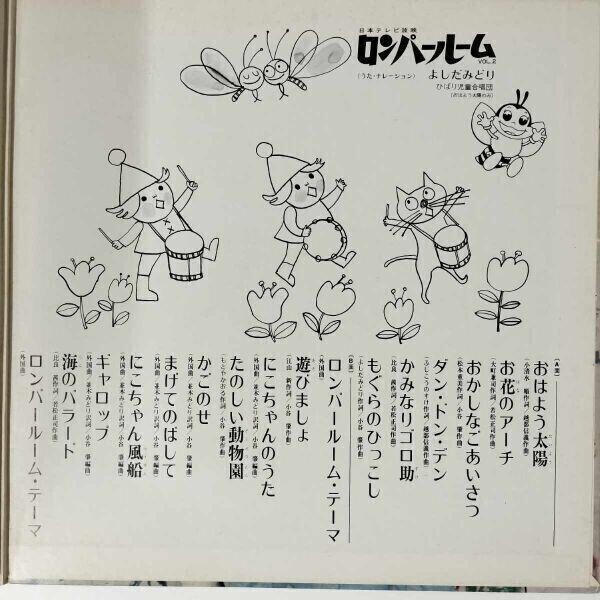 日本テレビ放映
ロンパールーム
VOL.2
(うた・ナレーション) よしだみどり
ひばり児童合唱団
(おはよう太陽のみ)
〔A面〕
おはよう太陽
お花のアーチ
(大町兼司作詞/若松正司作曲)
おかしなこあいさつ
(松本亜美作詞/小谷 肇作曲)
ダン・ドン・デン
(ふじこうのすけ作詞/越部信義作曲)
かみなりゴロ助
(比良 義作詞/若松正司作曲)
もぐらのひっこし
(よしだみどり作詞/小谷 肇作曲)
〔B面〕
ロンパールーム・テーマ
(外国曲)
遊びましょ
(江山 新作詞/小谷 肇作曲)
にこちゃんのうた
たのしい動物園
(もとやかおる作詞/小谷 肇作曲)
かごのせ
(外国曲/並木みどり訳詞/小谷 肇編曲)
まげてのばして
(外国曲/並木みどり訳詞/小谷 肇編曲)
にこちゃん風船
(外国曲/並木みどり訳詞/小谷 肇編曲)
ギャロップ
(外国曲/並木みどり訳詞/小谷 肇編曲)
海のバラード
(比良 義作詞/若松正司作曲)
ロンパールーム・テーマ
(外国曲)